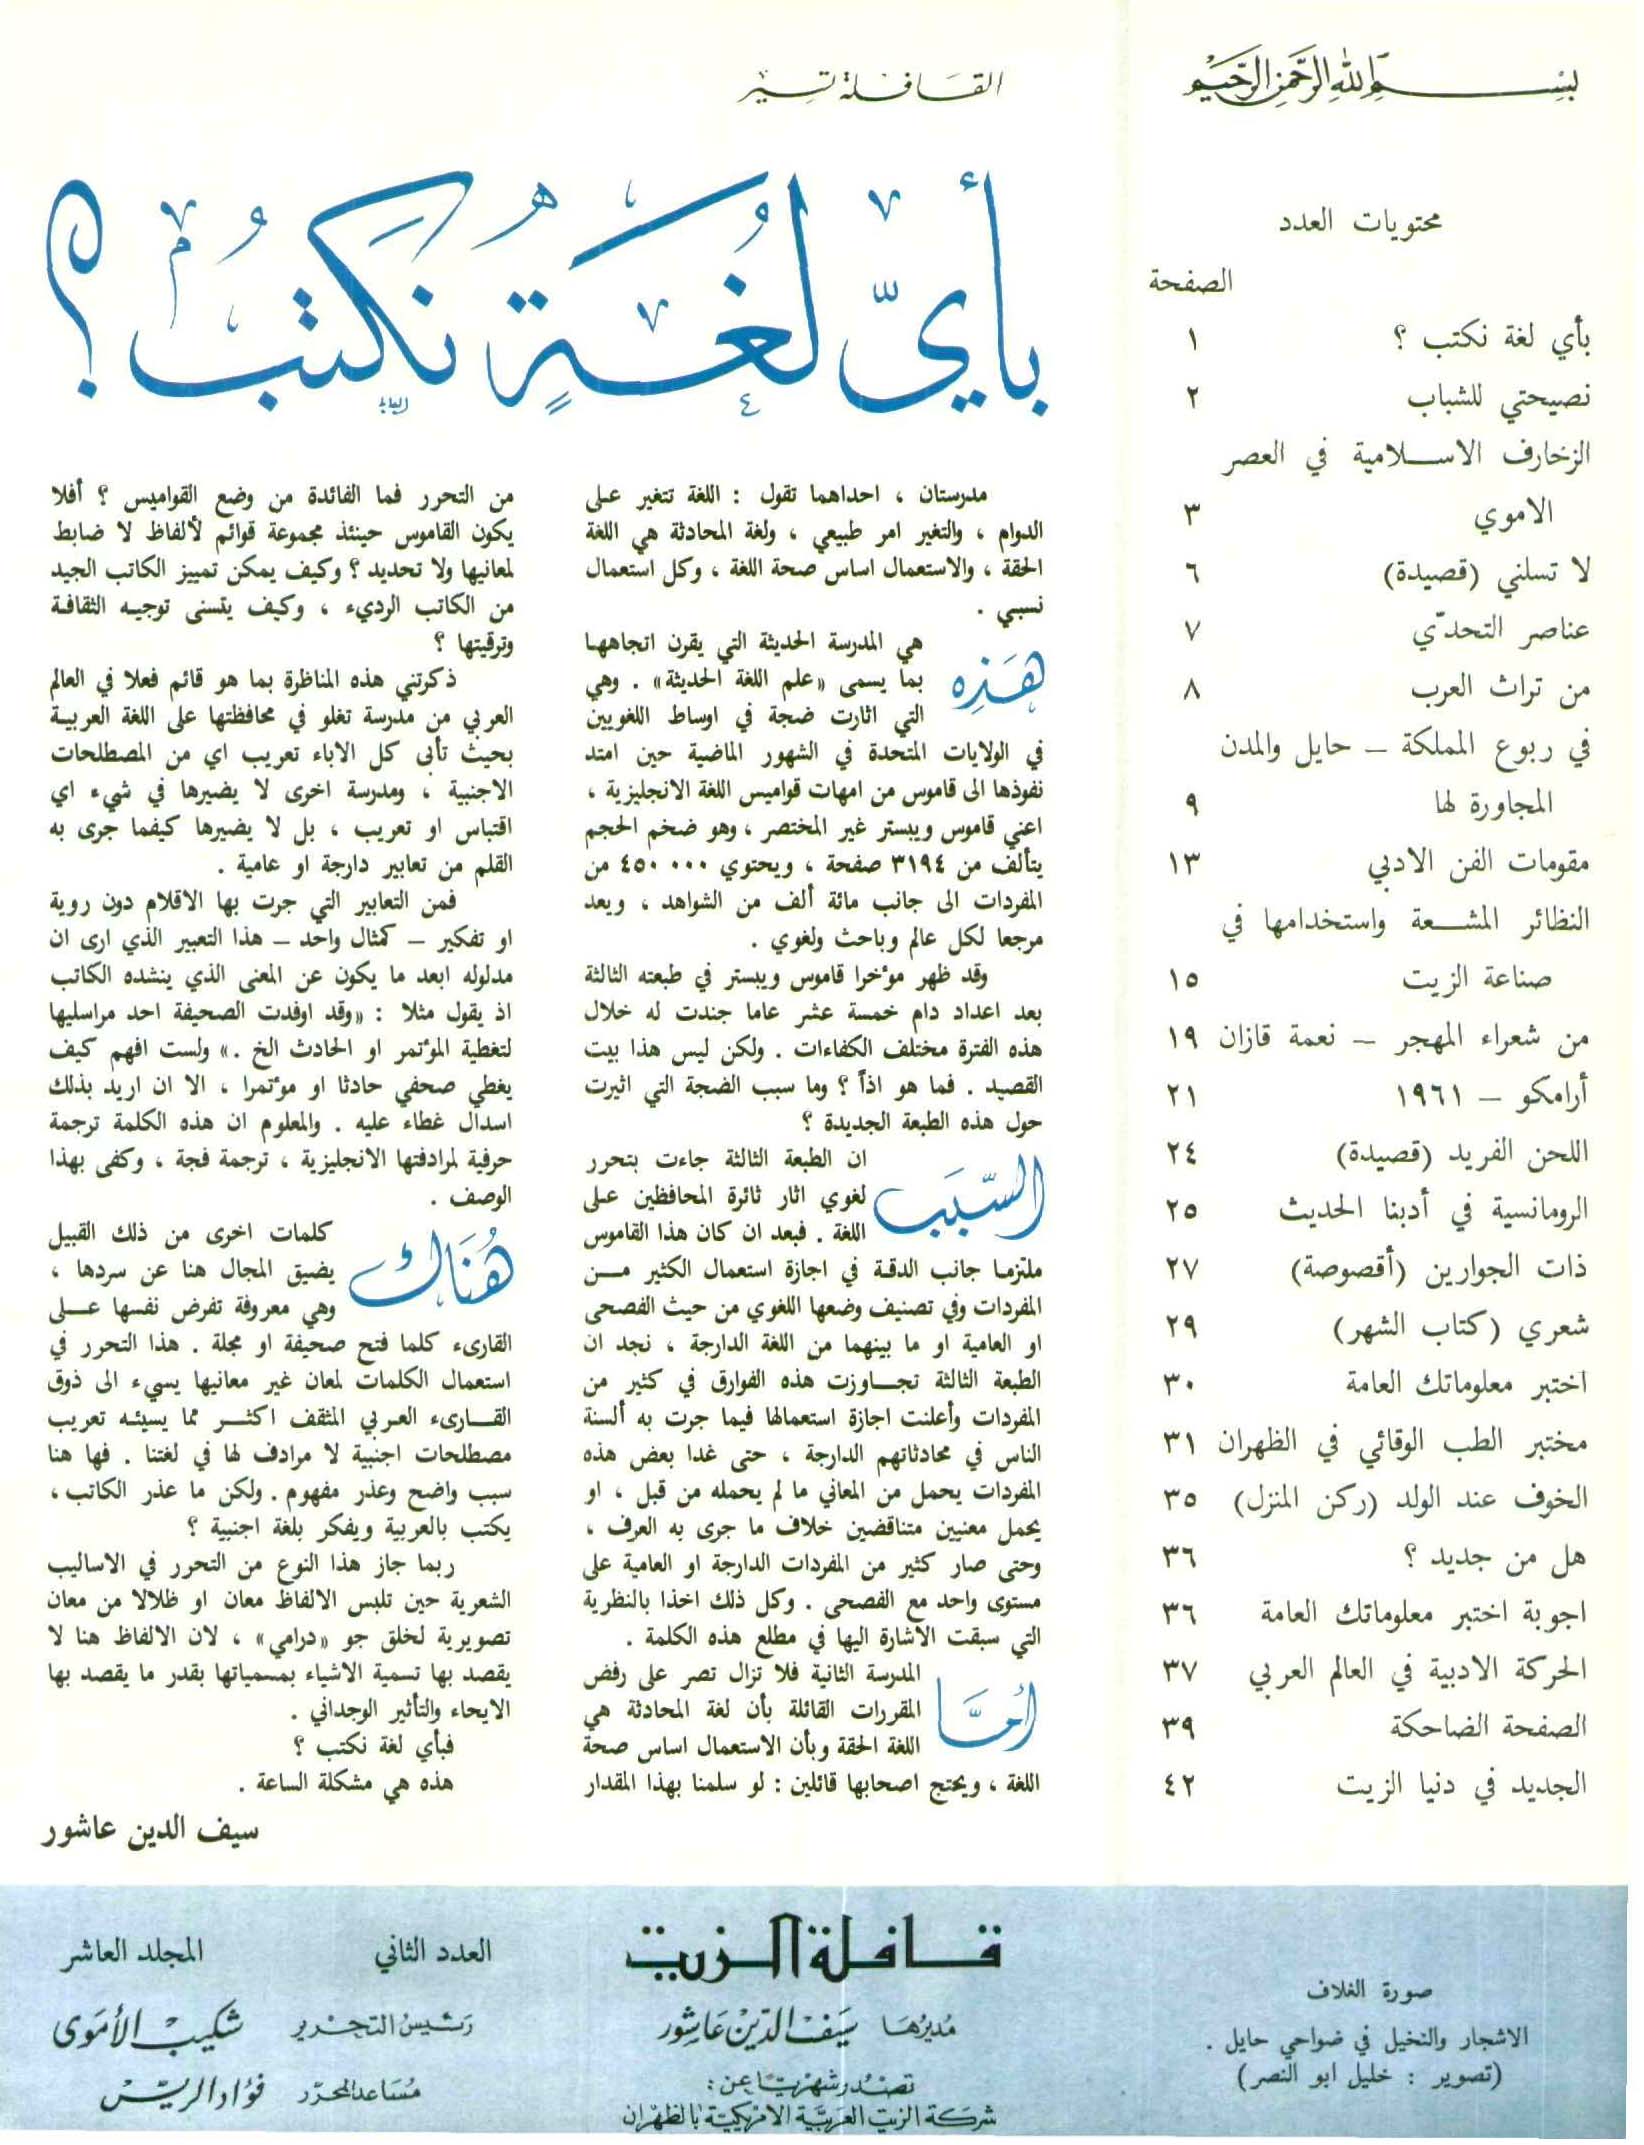 بسم الله الرحمن الرحيم
محتويات العدد
الصفحة
بأي لغة نكتب ؟ ١
نصيحتي للشباب ٢
الزخارف الاسلامية في العصر
الاموي ٣
لا تسلني (قصيدة) ٦
عناصر التحدّي ٧
من تراث العرب ٨
في ربوع المملكة – حايل والمدن
المجاورة لها ٩
مقومات الفن الادبي ١٣
النظائر المشعة واستخدامها في
صناعة الزيت ١٥
من شعراء المهجر – نعمة قازان ١٩
أرامكو – ١٩٦١ ٢١
اللحن الفريد (قصيدة) ٢٤
الرومانسية في أدبنا الحديث ٢٥
ذات الجوارين (أقصوصة) ٢٧
شعري (كتاب الشهر) ٢٩
اختبر معلوماتك العامة ٣٠
مختبر الطب الوقائي في الظهران ٣١
الخوف عند الولد (ركن المنزل) ٣٥
هل من جديد ؟ ٣٦
اجوبة اختبر معلوماتك العامة ٣٦
الحركة الادبية في العالم العربي ٣٧
الصفحة الضاحكة ٣٩
الجديد في دنيا الزيت ٤٢
القافلة تسير
بأيّ لُغَةٍ نكتبُ؟
مدرستان ، احداهما تقول : اللغة تتغير على
الدوام ، والتغير امر طبيعي ، ولغة المحادثة هي اللغة
الحقة ، والاستعمال اساس صحة اللغة ، وكل استعمال
نسبي .
هَذِه هي المدرسة الحديثة التي يقرن اتجاهها
بما يسمى «علم اللغة الحديثة» . وهي
التي اثارت ضجة في اوساط اللغويين
في الولايات المتحدة في الشهور الماضية حين امتد
نفوذها الى قاموس من امهات قواميس اللغة الانجليزية ،
اعني قاموس ويبستر غير المختصر ، وهو ضخم الحجم
يتألف من ٣١٩٤ صفحة ، ويحتوي ٤٥٠ ٠٠٠ من
المفردات الى جانب مائة ألف من الشواهد ، ويعد
مرجعا لكل عالم وباحث ولغوي .
وقد ظهر مؤخرا قاموس ويبستر في طبعته الثالثة
بعد اعداد دام خمسة عشر عاما جندت له خلال
هذه الفترة مختلف الكفاءات . ولكن ليس هذا بيت
القصيد . فما هو اذاً ؟ وما سبب الضجة التي اثيرت
حول هذه الطبعة الجديدة ؟
السَّبَب ان الطبعة الثالثة جاءت بتحرر
لغوي اثار ثائرة المحافظين على
اللغة . فبعد ان كان هذا القاموس
ملتزما جانب الدقة في اجازة استعمال الكثير من
المفردات وفي تصنيف وضعها اللغوي من حيث الفصحى
او العامية او ما بينهما من اللغة الدارجة ، نجد ان
الطبعة الثالثة تجاوزت هذه الفوارق في كثير من
المفردات وأعلنت اجازة استعمالها فيما جرت به ألسنة
الناس في محادثاتهم الدارجة ، حتى غدا بعض هذه
المفردات يحمل من المعاني ما لم يحمله من قبل ، او
يحمل معنيين متناقضين خلاف ما جرى به العرف ،
وحتى صار كثير من المفردات الدارجة او العامية على
مستوى واحد مع الفصحى . وكل ذلك اخذا بالنظرية
التي سبقت الاشارة اليها في مطلع هذه الكلمة .
أمَّا المدرسة الثانية فلا تزال تصر على رفض
المقررات القائلة بأن لغة المحادثة هي
اللغة الحقة وبأن الاستعمال اساس صحة
اللغة ، ويحتج اصحابها قائلين : لو سلمنا بهذا المقدار
من التحرر فما الفائدة من وضع القواميس ؟ أفلا
يكون القاموس حينئذ مجموعة قوائم لألفاظ لا ضابط
لمعانيها ولا تحديد ؟ وكيف يمكن تمييز الكاتب الجيد
من الكاتب الرديء ، وكيف يتسنى توجيه الثقافة
وترقيتها ؟
ذكرتني هذه المناظرة بما هو قائم فعلا في العالم
العربي من مدرسة تغلو في محافظتها على اللغة العربية
بحيث تأبى كل الاباء تعريب اي من المصطلحات
الاجنبية ، ومدرسة اخرى لا يضيرها في شيء اي
اقتباس او تعريب ، بل لا يضيرها كيفما جرى به
القلم من تعابير دارجة او عامية .
فمن التعابير التي جرت بها الاقلام دون روية
او تفكير – كمثال واحد – هذا التعبير الذي ارى ان
مدلوله ابعد ما يكون عن المعنى الذي ينشده الكاتب
اذ يقول مثلا : «وقد اوفدت الصحيفة احد مراسليها
لتغطية المؤتمر او الحادث الخ .» ولست افهم كيف
يغطي صحفي حادثا او مؤتمرا ، الا ان اريد بذلك
اسدال غطاء عليه . والمعلوم ان هذه الكلمة ترجمة
حرفية لمرادفتها الانجليزية ، ترجمة فجة ، وكفى بهذا
الوصف .
هُنَاك كلمات اخرى من ذلك القبيل
يضيق المجال هنا عن سردها ،
وهي معروفة تفرض نفسها على
القارىء كلما فتح صحيفة او مجلة . هذا التحرر في
استعمال الكلمات لمعان غير معانيها يسيء الى ذوق
القارىء العربي المثقف اكثر مما يسيئه تعريب
مصطلحات اجنبية لا مرادف لها في لغتنا . فها هنا
سبب واضح وعذر مفهوم . ولكن ما عذر الكاتب ،
يكتب بالعربية ويفكر بلغة اجنبية ؟
ربما جاز هذا النوع من التحرر في الاساليب
الشعرية حين تلبس الالفاظ معان او ظلالا من معان
تصويرية لخلق جو «درامي» ، لان الالفاظ هنا لا
يقصد بها تسمية الاشياء بمسمياتها بقدر ما يقصد بها
الايحاء والتأثير الوجداني .
فبأي لغة نكتب ؟
هذه هي مشكلة الساعة .
سيف الدين عاشور
صورة الغلاف
الاشجار والنخيل في ضواحي حايل .
(تصوير : خليل ابو النصر)
قافلة الزيت
مُديرُهَا سَيفُ الدّين عَاشور
تصدُر شهريًا عن :
شركة الزيت العربيَّة الامريكيَّة بالظهران
العدد الثاني المجلد العاشر
رَئيسُ التحرير شكيب الأمَوي
مُسَاعد المحَرّر فؤاد الريّس